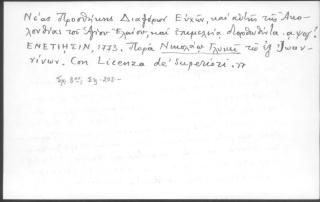 Νέας Προσθήκης Διαφόρων Εὐχῶν, καὶ αὐτῆς τῆς Ἀκο-
λουθίας τοῦ Ἁγίου Ἐλαίου, καὶ ἐπιμελείᾳ διορθωθέντα. αψογ!
ΕΝΕΤΙΗΣΙΝ, 1773. Παρὰ Νικολάῳ Γλυκεῖ τῷ ἐξ Ἰωαν-
νίνων. Con Licenza de' Superiori.
Σχ. 8ον, Σελ. 208.-